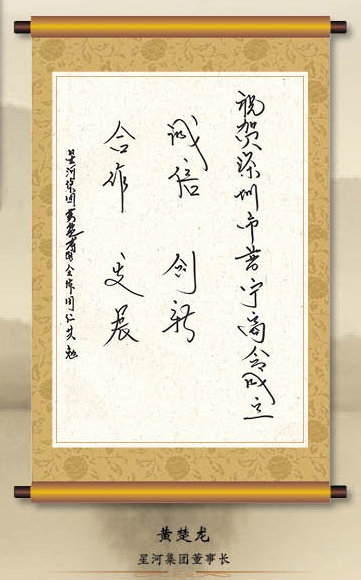 祝贺深圳市普宁商会成立
诚信 创新
合作 发展
星河集团黄楚龙 合作同仁共勉
黄楚龙
星河集团董事长